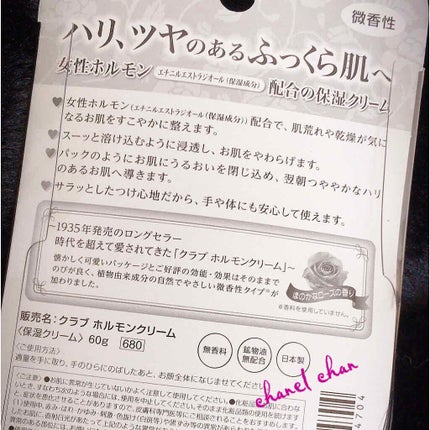 微香性
ハリ、ツヤのあるふっくら肌へ
女性ホルモン エチニルエストラジオール(保湿成分) 配合の保湿クリーム
♥女性ホルモン(エチニルエストラジオール(保湿成分))配合で、肌荒れや乾燥が気に
なるお肌をすこやかに整えます。
♥スーッと溶け込むように浸透し、お肌をやわらげます。
♥パックのようにお肌にうるおいを閉じ込め、翌朝つややかなハリ
のあるお肌へ導きます。
♥サラッとしたつけ心地だから、手や体にも安心して使えます。
~1935年発売のロングセラー
時代を超えて愛されてきた「クラブ ホルモンクリーム」~
懐かしく可愛いパッケージとご好評の効能・効果はそのままで
のびが良く、植物由来成分の自然でやさしい微香性タイプ※が
加わりました。
ほのかなローズの香り
※香料を使用していません。
販売名:クラブ ホルモンクリーム
〈保湿クリーム〉60g 680
無香料
鉱物油
無配合
日本製
〈ご使用方法〉
適量を手に取り、手のひらにのばしたあと、お顔全体になじませてください。
〈ご注意〉●お肌に異常が生じていないかよく注意して使用してください。
chanel chan
4704